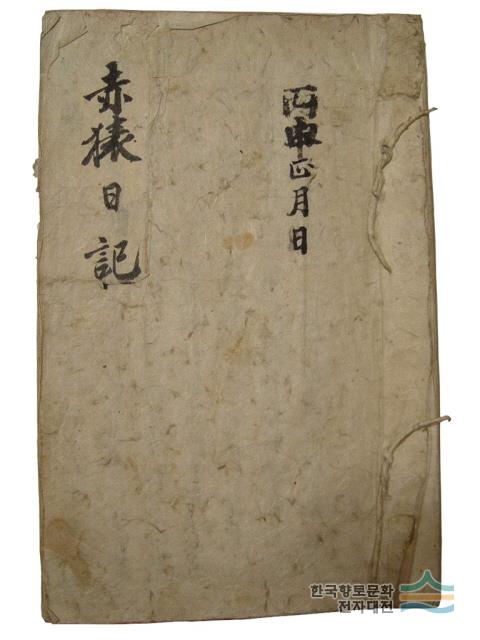 丙申正月日
赤猿日記
한국향토문화
전자대전